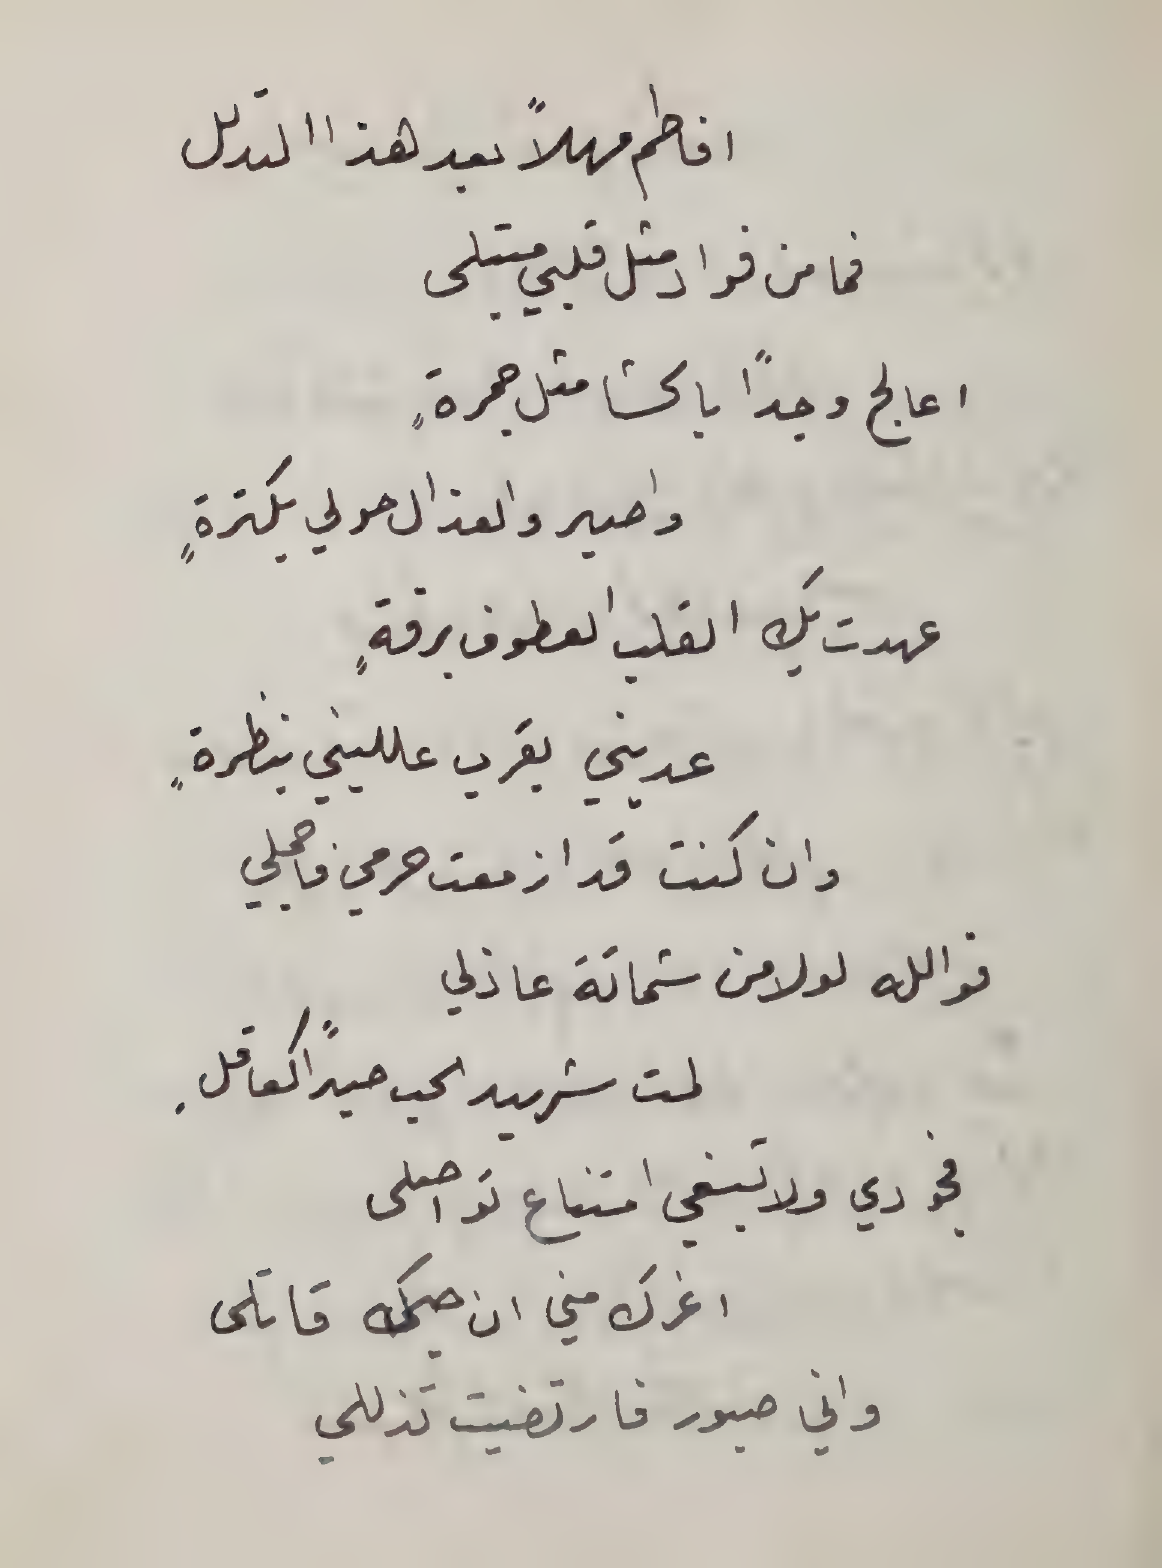 افاطم مهلاً بعد هذا التدلل
فما من فواد مثل قلبي مبتلى
اعالج وجداً بالحشا مثل جمرةٍ
واصبر والعذال حولي بكثرةٍ
عهدت بك القلب العطوف برقةٍ
عديني بقرب علليني بنظرةٍ
وان كنت قد ازمعت صرمي فاجملي
فوالله لولا من شماتة عاذلي
لمت شهيد الحب صبراً كعاقلِ
فجودي ولا تبغي امتناع تواصلي
اغرك مني ان حبك قاتلي
واني صبور فارتضيت تذللي